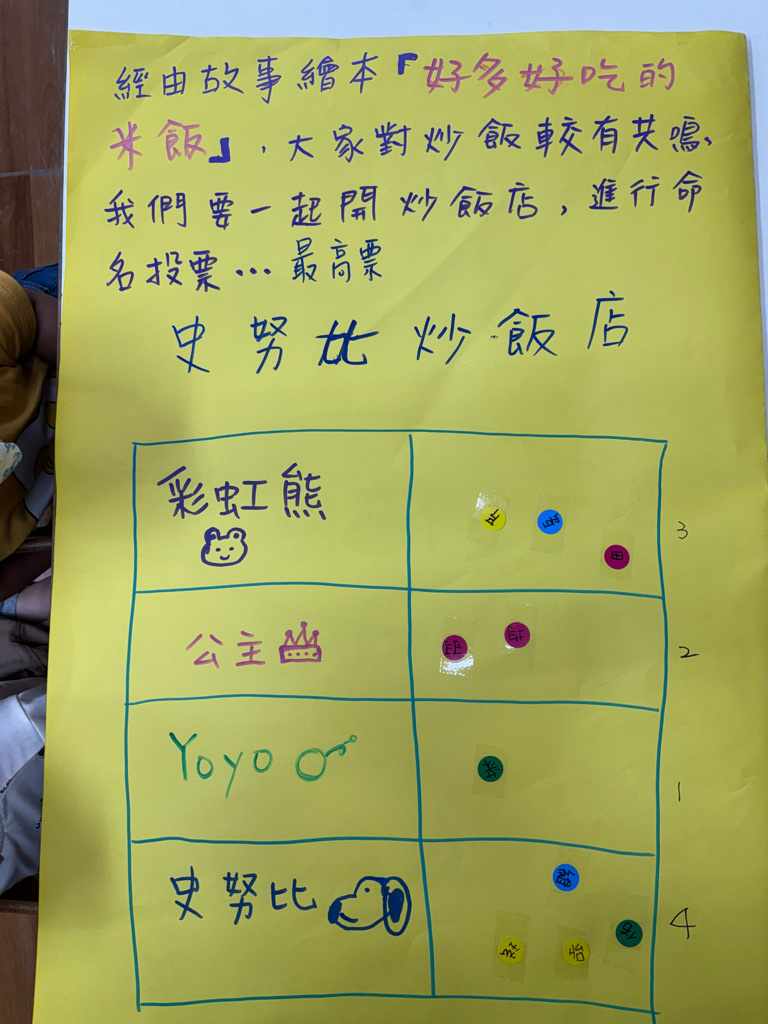 經由故事繪本『好多好吃的
米飯』，大家對炒飯較有共鳴、
我們要一起開炒飯店，進行命
名投票…最高票
史努比炒飯店
彩虹熊
3
公主
2
Yoyo
1
史努比
4